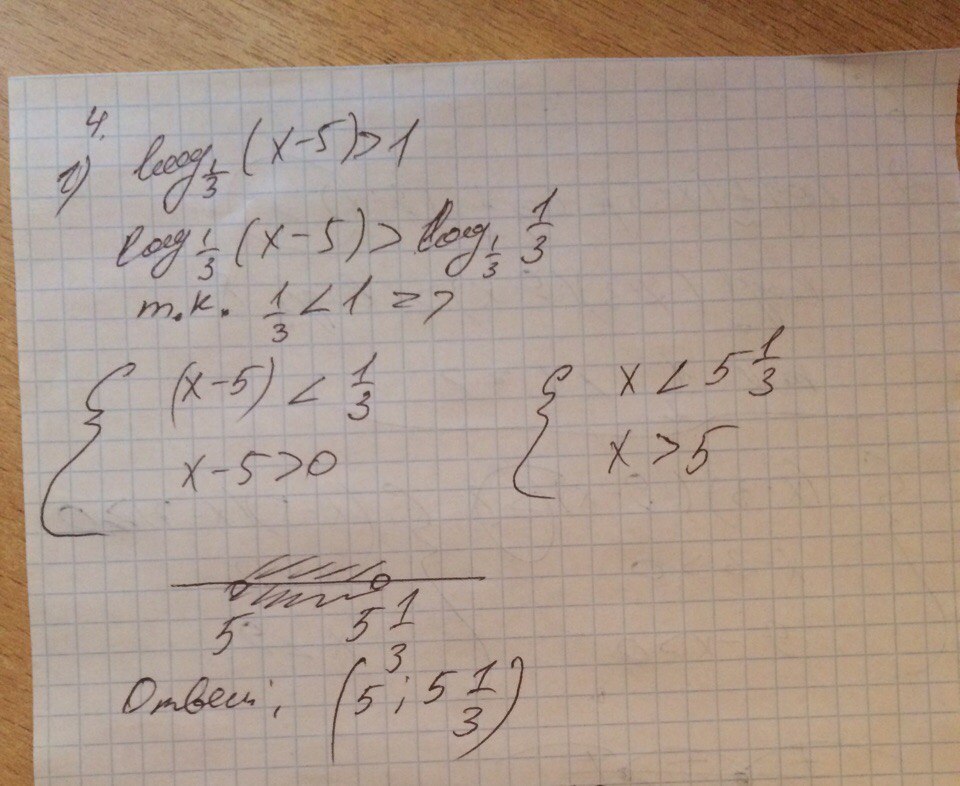 4.
1) log 1/3 (x-5)>1
log 1/3 (x-5)> log 1/3 1/3
т.к. 1/3 <1 =>
{ (x-5) < 1/3 { x < 5 1/3
x-5>0 x >5
5 5 1/3
Ответ: (5; 5 1/3)